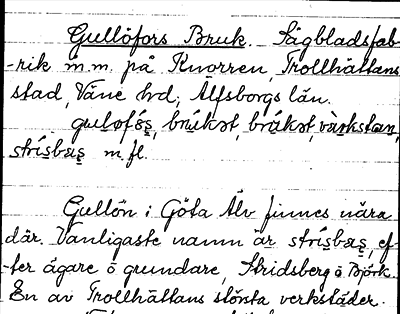 Gullöfors Bruk. Sågbladsfab-
-rik m.m. på Knorren, Trollhättans
stad, Väne hd; Älfsborgs län.
gulofɷs̱, brúkət, brúkət, vàrkstan,
strísbæs m.fl.
Gullön i Göta Älv finnes nära
där. Vanligaste namn är strísbæs, ef-
-ter ägare o grundare, Stridsberg o Björk.
En av Trollhättans största verkstäder.